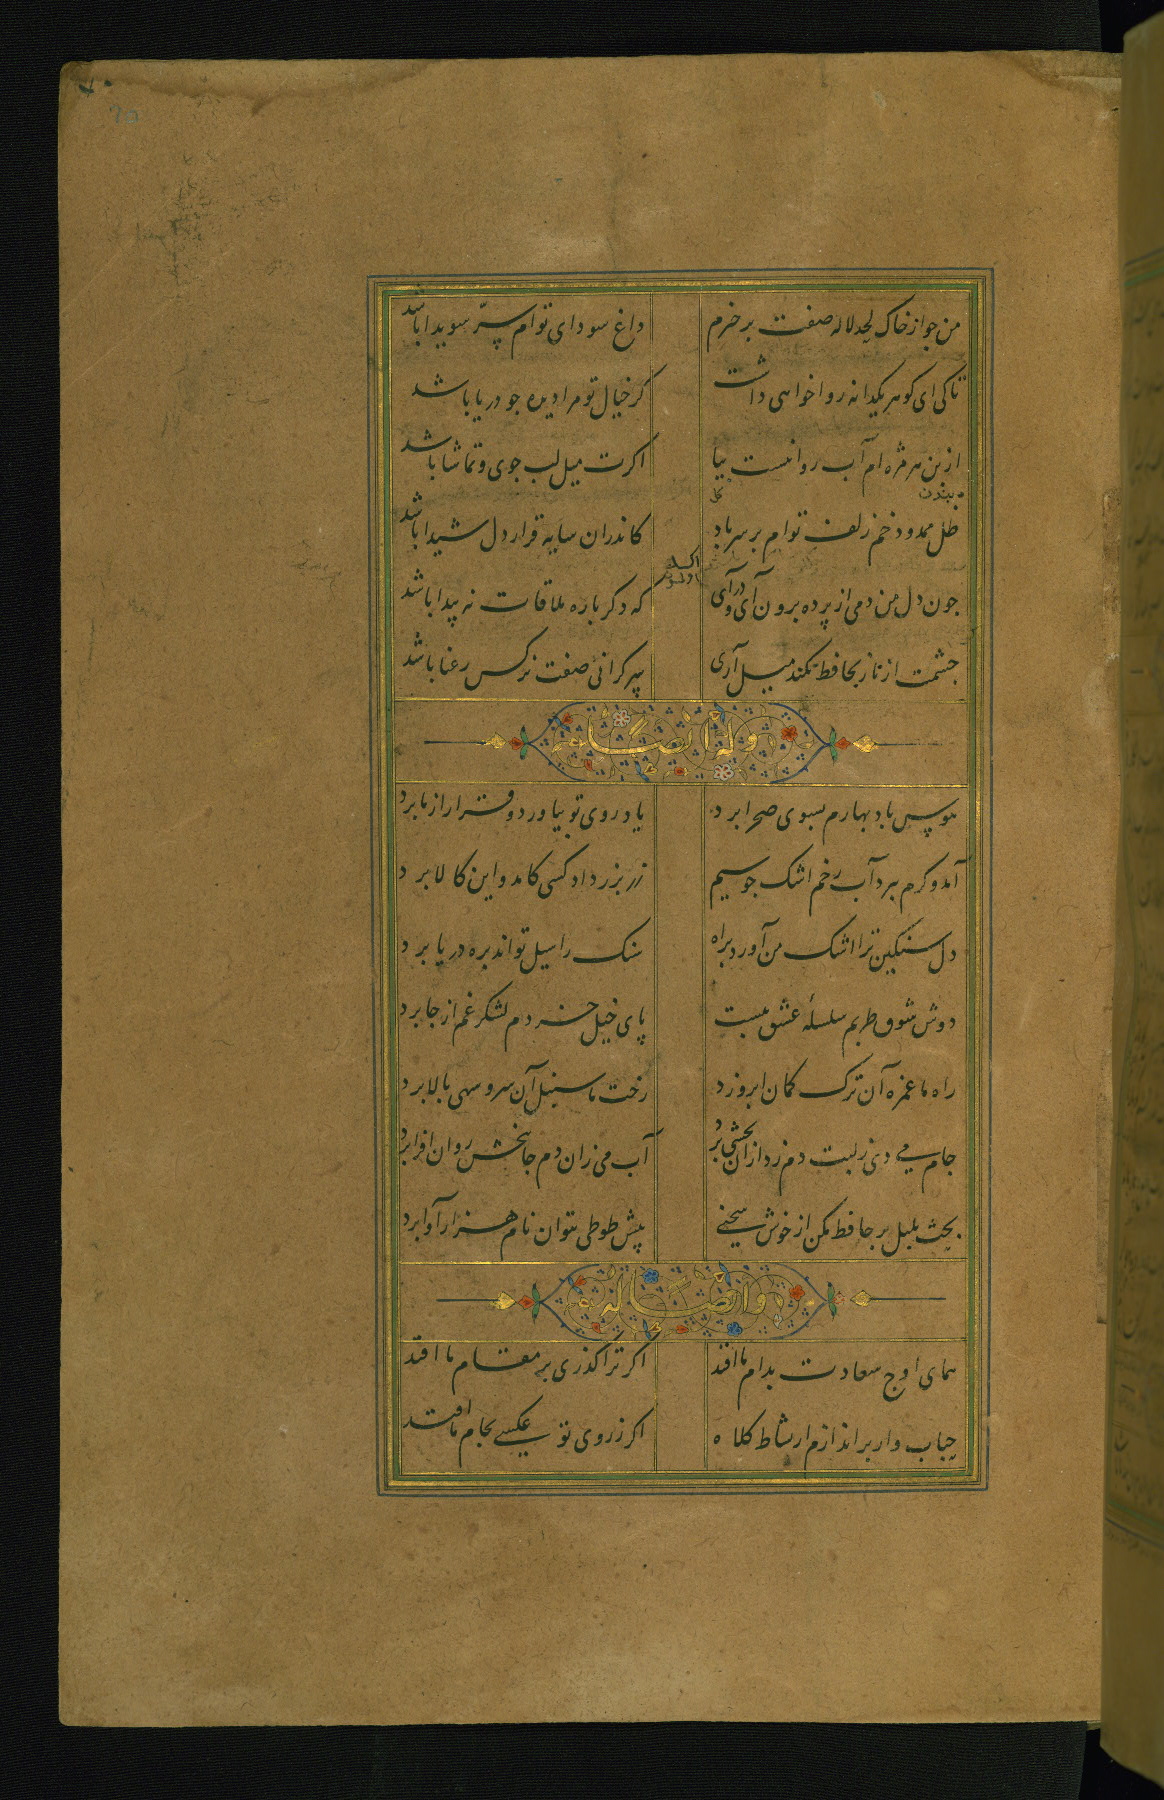 من چو از خاک لحد لاله صفت برخیزم داغ سودای توام سرّ سویدا باشد
تا کی ای کوهر یکدانه روا خواهی داشت کز خیال تو مرا دیده چو دریا باشد
از بن هر مژه ام آب روانست بیا اکرت میل لب جوی و تماشا باشد
ظل ممدود خم زلف توام بر سر باد کاندران سایه قرار دل شیدا باشد
چون دل من دمی از پرده برون آی و درآی که دکر باره ملاقات نه پیدا باشد
چشمت از ناز بحافظ نکند میل آری سر کرانی صفت نرکس رعنا باشد
وله ایضا
بوس باد بهارم بسوی صحرا برد باد روی تو بیاورد و قرار از ما برد
آمد و کرم ببرد آب رخم اشک چو سیم زر بزر داد کسی کامد و این کالا برد
دل سنکین ترا اشک من آورد براه سنک را سیل تواند بره دریا برد
دوش شوق طربم سلسلۀ عشق ببست پای خیل خردم لشکر غم از جا برد
راه ما غمزه آن ترک کمان ابرو زد رخت ما سنبل آن سرو سهی بالا برد
جام می دی ز لبت دم زد از آن بخشی برد آب می زان دم جانبخش روان افزا برد
بحث بلبل بر حافظ مکن از خوش سخنی پیش طوطی نتوان نام هزار آوا برد
وایضا له
همای اوج سعادت بدام ما افتد اکر ترا کذری بر مقام ما افتد
حباب وار براندازم از نشاط کلاه اکر ز روی تو عکسی بجام ما افتد